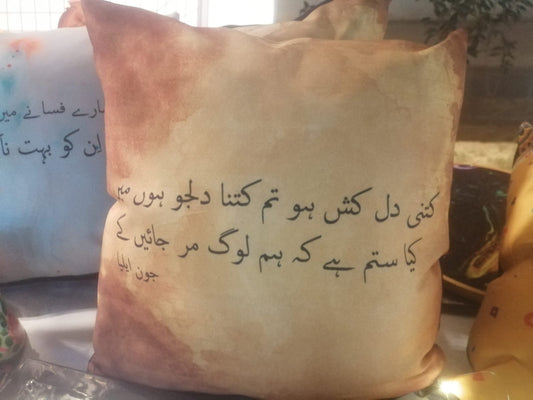 کتنی دل کش ہو تم کتنا دلجو ہوں میں
کیا ستم ہے کہ ہم لوگ مر جائیں گے
جون ایلیا
ارے فسانے میں
ان کو بہت